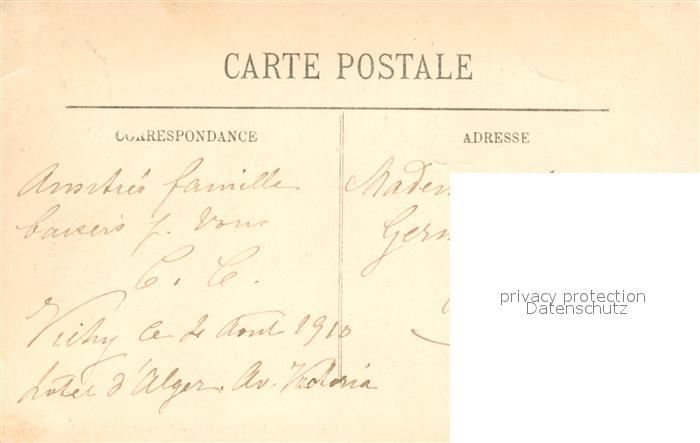 CARTE POSTALE
CORRESPONDANCE
ADRESSE
Amitiés famille
baisers p. Vous
C. C.
Vichy le 2 Aout 1910
hôtel d'Alger. Av. Victoria
privacy protection
Datenschutz